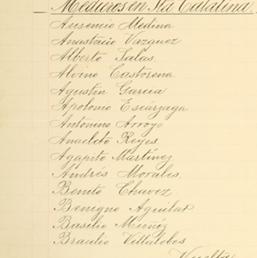 Medieros en Sta Catalina.
Ausencio Medina
Anastacio Vazquez
Alberto Salas
Alvino Castorena
Agustin Garcia
Apolonio Escárzaga
Antonino Arroyo
Anacleto Reyes
Agapito Martinez
Andrés Morales
Benito Chavez
Benigno Aguilar
Basilio Muñóz
Braulio Villalobos
Vuelta